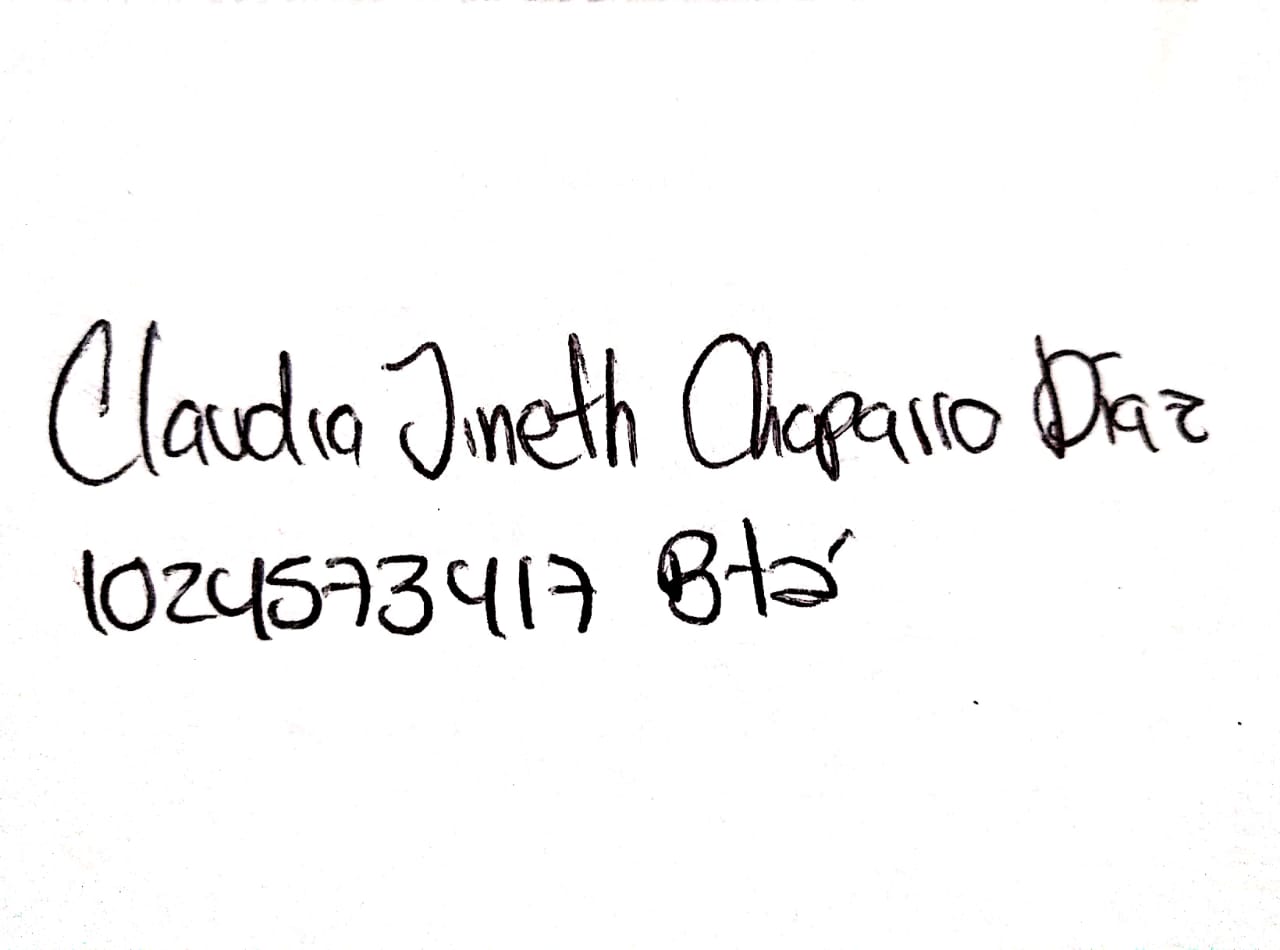 Claudia Jineth Chaparro Díaz
1024573417 Btá